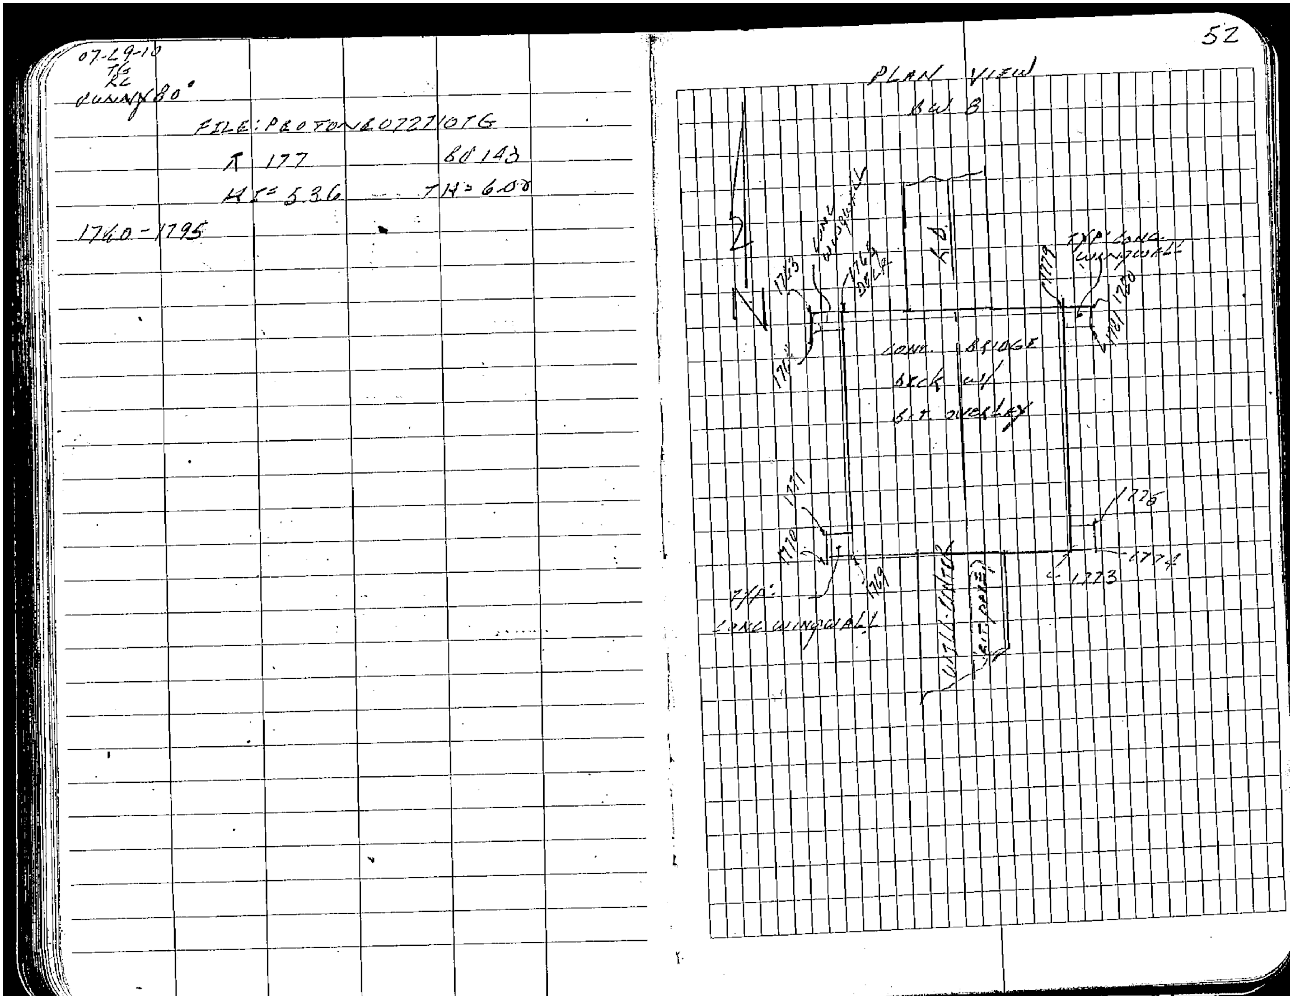 07-29-10
TG
KC
SUNNY 80°
FILE: PROTONR072710TG
⊼ 177 BS 143
HI= 5.36 TH= 6.00
1760-1795
52
PLAN VIEW
BW 8
N
CONC
WINGWALL
1763
1762
DECK
RD.
1779
TYP. CONC.
WINGWALL
1780
1781
CONC. BRIDGE
DECK w/
BIT. OVERLAY
1771
1770
1769
TYP.
CONC WINGWALL
1775
1774
1773
BIT.